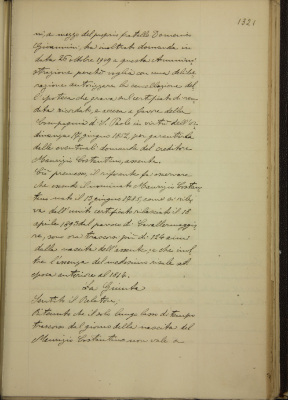 1321
ni, a mezzo del proprio fratello Domenico
Giovannini, ha inoltrato domanda in
data 26 ottobre 1909 a questa Amminis
trazione perché voglia con una delibe
razione autorizzare la cancellazione del
l'ipoteca che grava sul certificato di ren
dita ricordato, e accesa a favore della
Compagnia di S. Paolo in virtù dell'or
dinanza 17 giugno 1872, per garantirla
delle eventuali domande del creditore
Maurizio Costantino, assente.
Ciò premesso, il riferente fa osservare
che essendo il nominato Maurizio Costan
tino nato il 13 giugno 1785, come si rile
va dall'unito certificato rilasciato il 18
aprile 1897 dal parroco di Cavallermaggio
re, sono ora trascorsi più di 124 anni
dalla nascita dell'assente, e che inol
tre l'assenza del medesimo risale ad
epoca anteriore al 1816.
La Giunta
Sentito il Relatore,
Ritenuto che il solo lungo lasso di tempo
trascorso dal giorno della nascita del
Maurizio Costantino non vale a